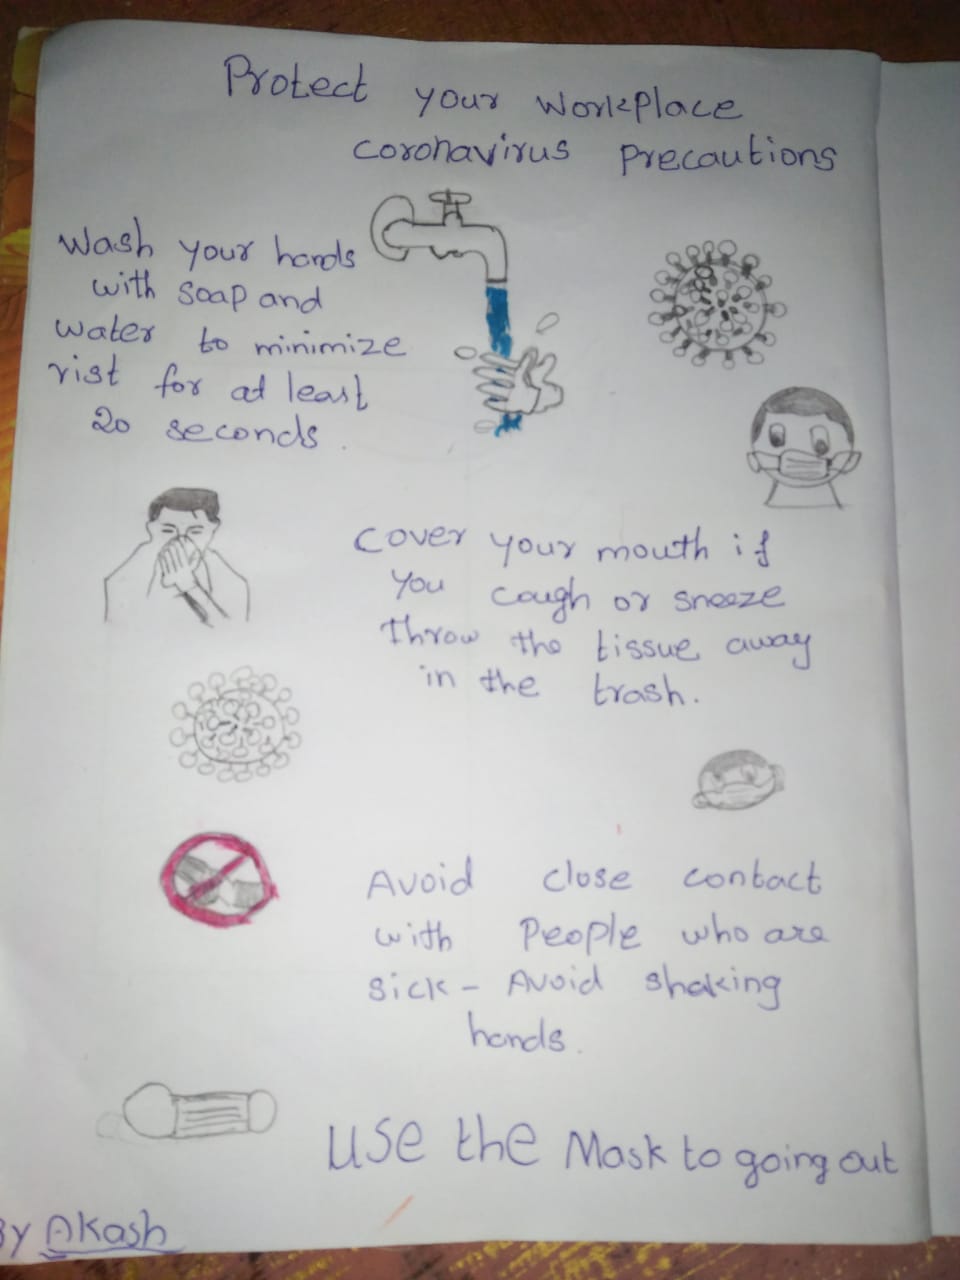 Protect your workplace
coronavirus precautions
Wash your hands
with soap and
water to minimize
rist for at least
20 seconds.
cover your mouth if
you cough or sneeze
throw the tissue away
in the trash.
Avoid close contact
with people who are
sick - Avoid shaking
hands.
use the Mask to going out
By Akash